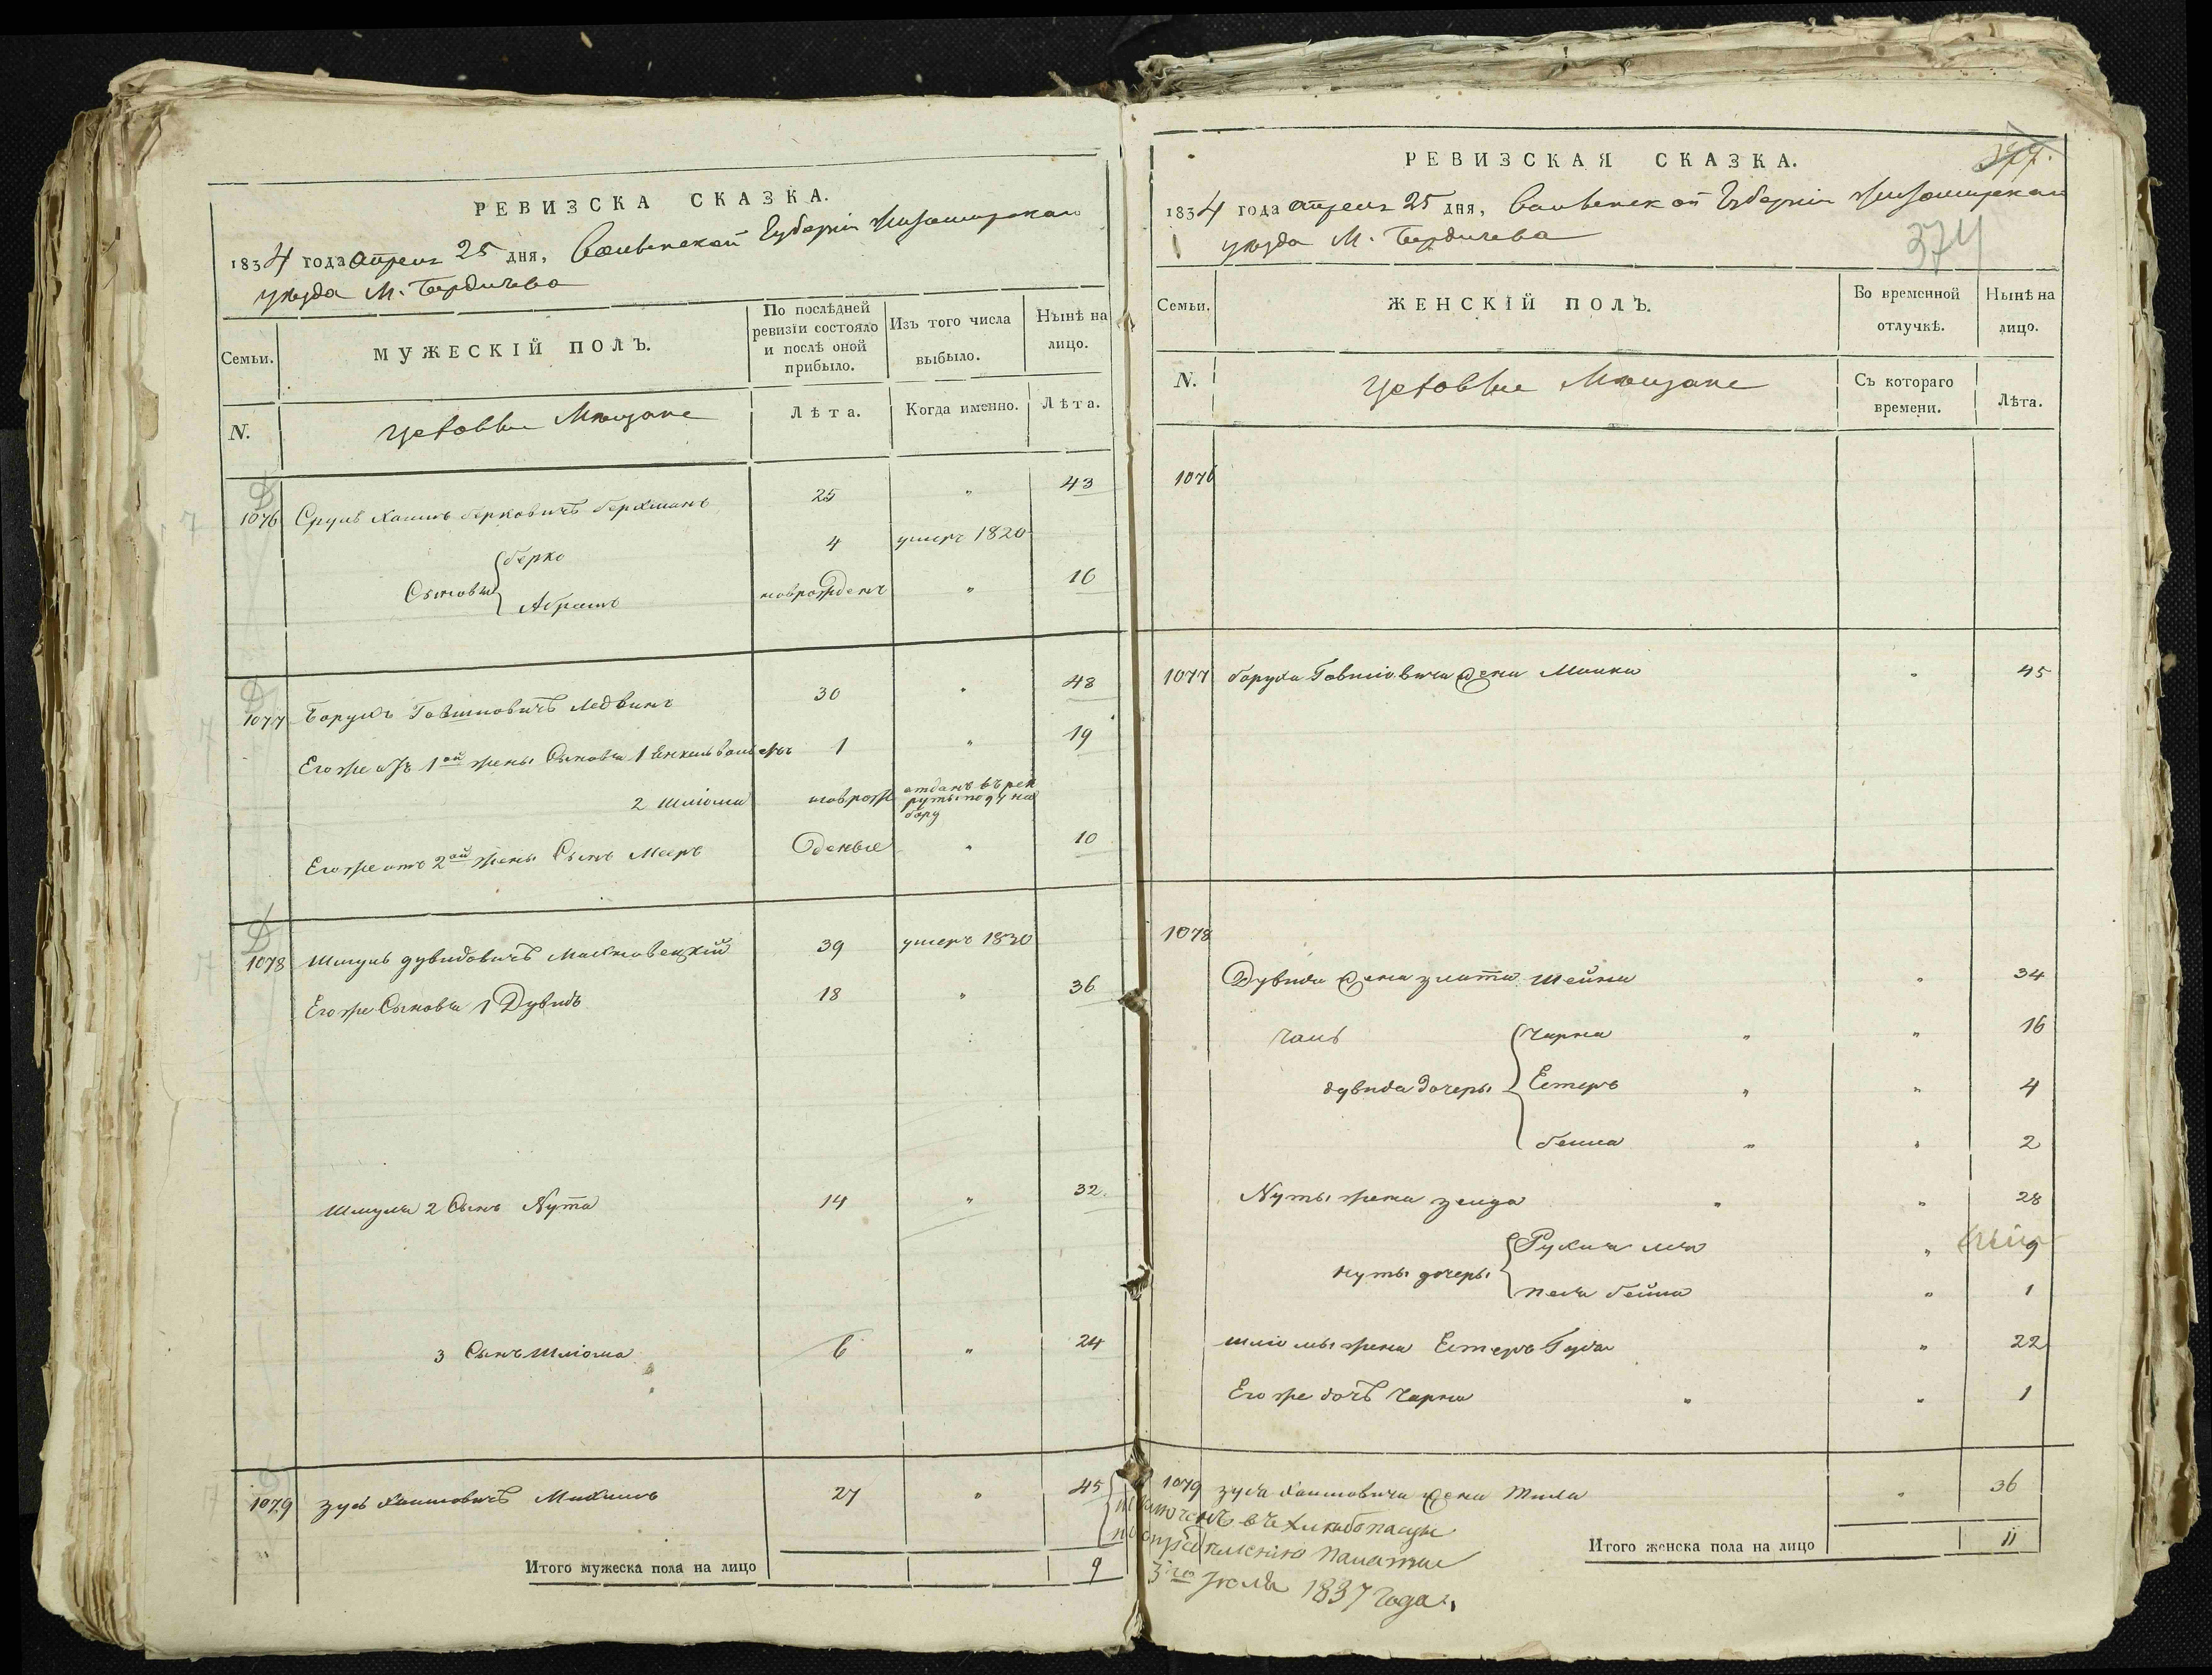 РЕВИЗСКА СКАЗКА.
1834 года Апреля 25 дня, Волынской Губерніи Житомирскаго
уезда М. Бердичева
Семьи.
МУЖЕСКІЙ ПОЛЪ.
По послѣдней ревизіи состояло и послѣ оной прибыло.
Изъ того числа выбыло.
Нынѣ на лицо.
N.
Мещане
Лѣта.
Когда именно.
Лѣта.
1076 Сруль Хаимъ Берковичъ 25 " 43
Сыновья
Берко 4 умеръ 1820
Абрамъ новорожденъ " 16
1077 Борухъ Ледвинъ 30 " 48
Его же отъ 1ой жены Сыновья 1 1 " 19
2 Шліома новорож отданъ въ рек
руты по 94 на
бору
Его же отъ 2ой жены Сынъ Мееръ денные " 10
1078 Шмуль Дувидовичъ 39 умеръ 1830
Его же Сыновья 1 Дувидъ 18 " 36
Шмуля 2 Сынъ Нута 14 " 32.
3 Сынъ Шліома 6 " 24
1079 Зусь Хаимовичъ 27 " 45
Итого мужеска пола на лицо 9
РЕВИЗСКАЯ СКАЗКА.
374
1834 года Апреля 25 дня, Волынской Губерніи Житомирскаго
уезда М. Бердичева
Семьи.
ЖЕНСКІЙ ПОЛЪ.
Во временной отлучкѣ.
Нынѣ на лицо.
N.
Мещане
Съ котораго времени.
Лѣта.
1076
1077 Боруха жена " 45
1078
Дувида жена Злата Шейна " 34
Дочь Чарна " " 16
Дувида дочеры
Естеръ " " 4
Бейла " " 2
Нуты жена " " 28
Нуты дочеры
" 9
Бейла " 1
Шліомы жена Естеръ " 22
Его же дочь Чарна " " 1
1079 Зуся Хаимовича жена " 36
въ хлебопашцы
Палаты
3го Июля 1837 года.
Итого женска пола на лицо 11